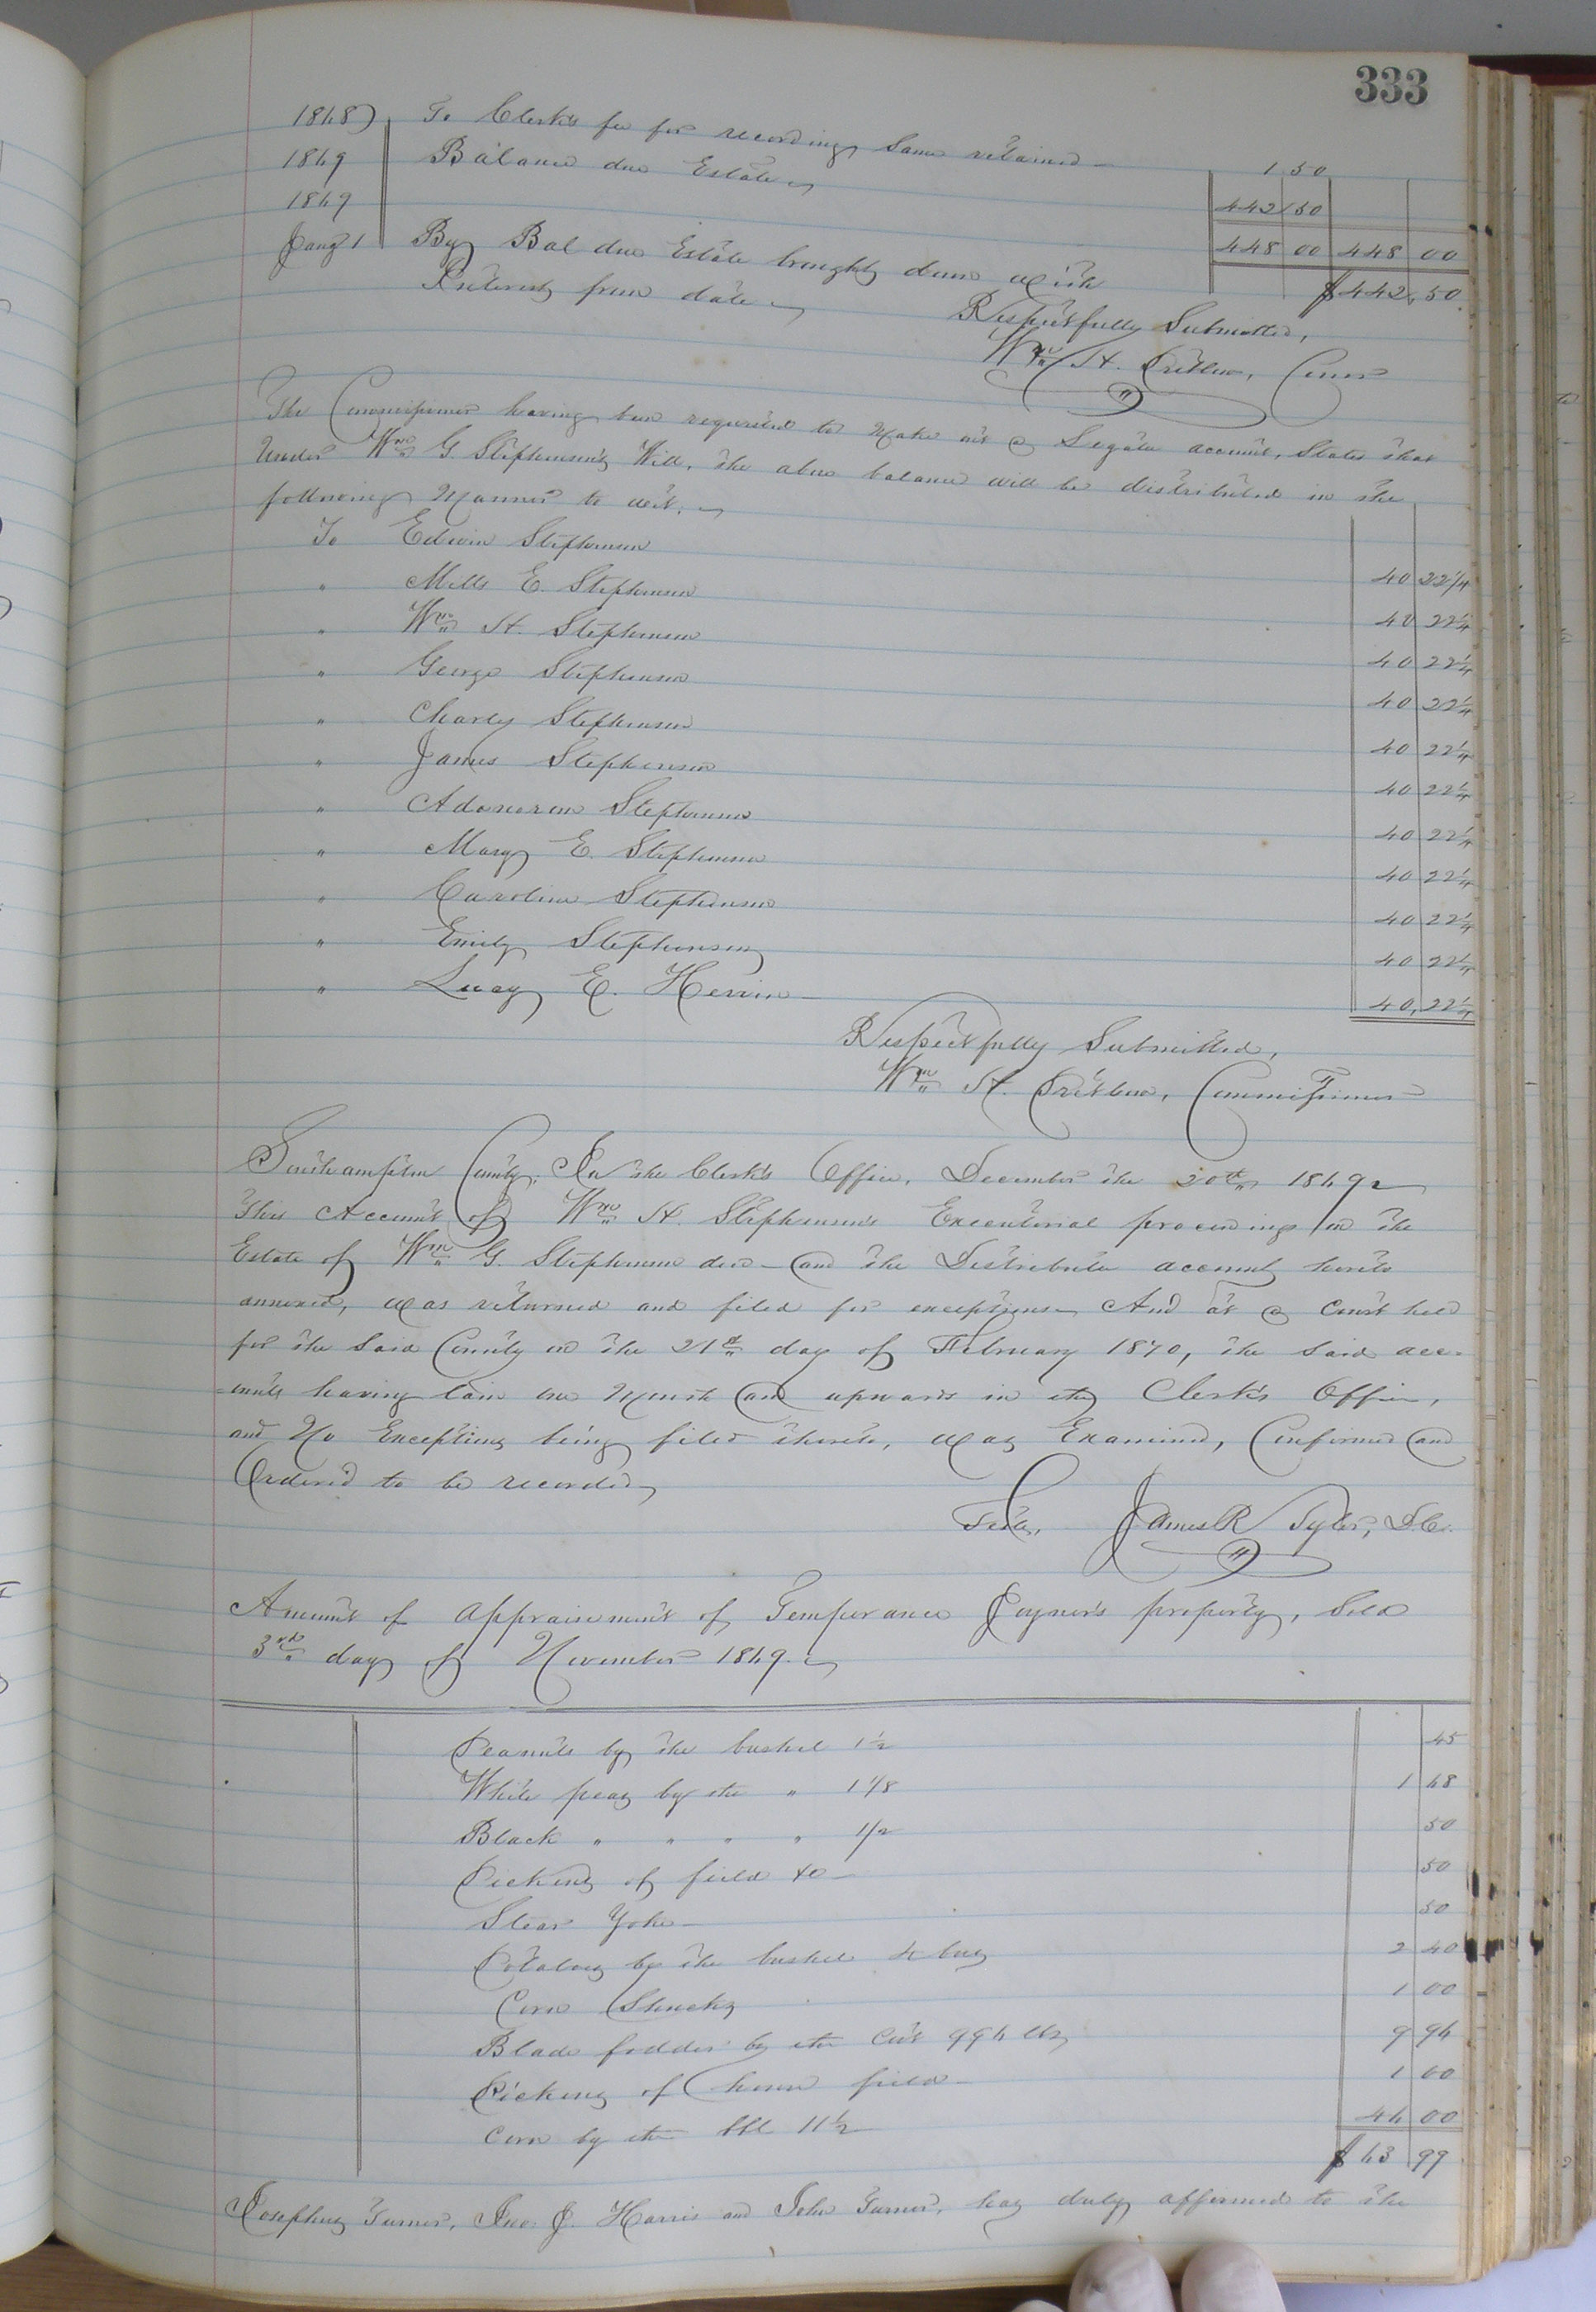 333
1868) To Clerk's fee for recording Same retained 1 50
1869 Balance due Estate 442 50
1869 448 00 448 00
Jany 1 By Bal due Estate brought down with
Interest from date $442.50
Respectfully Submitted,
Wm H. Comr
The Commissioner having been requested to make out a Legatee account, States that
Under Wm G. Stephenson's Will, the above balance will be distributed in the
following Manner to wit.
To Edwin Stephenson 40 22 1/4
" Mills E. Stephenson 40 22 1/4
" Wm H. Stephenson 40 22 1/4
" George Stephenson 40 22 1/4
" Charly Stephenson 40 22 1/4
" James Stephenson 40 22 1/4
" Adoneram Stephenson 40 22 1/4
" Mary E. Stephenson 40 22 1/4
" Caroline Stephenson 40 22 1/4
" Emily Stephenson 40 22 1/4
" Lucy E. 40.22 1/4
Respectfully Submitted,
Wm H. Commissioner
Southampton County, In the Clerk's Office, December the 20th 1869
This Account of Wm H. Stephenson's Executorial proceedings on the
Estate of Wm G. Stephenson decd and the Distributee account hereto
annexed, was returned and filed for exceptions And at a Court held
for the Said County on the 21st day of February 1870, the Said acc-
ounts having lain one Month and upwards in the Clerk's Office,
and No Exceptions being filed thereto, was Examined, Confirmed and
Ordered to be recorded
Teste, James R Tyler, D.C.
Amount of Appraisement of Temperance Joyner's property, Sold
3rd day of November 1869.
Peanuts by the bushel 1 1/2 45
White peas by the " 1 1/8 1 68
Black " " " " 1/2 50
Picking of field &c 50
Stear Yoke 50
Potatoes by the bushel 4 bus 2 40
Corn Shucks 1 00
Blade fodder by the Cwt 994 lbs 9 94
Picking of home field 1 00
Corn by the bbl 11 1/2 46 00
$63 99
Josephus Turner, Jno. J. Harris and John Turner, has duly affirmed to the